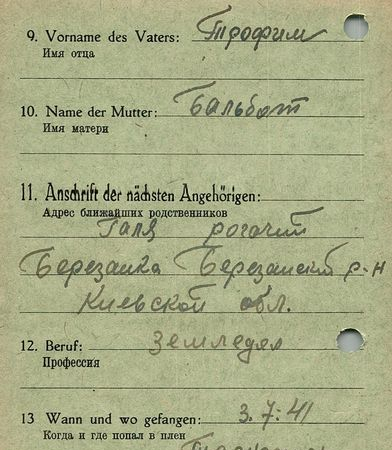 9. Vorname des Vaters: Трофим
Имя отца
10. Name der Mutter: Бальбот
Имя матери
11. Anschrift der nächsten Angehörigen:
Адрес ближайших родственников
Галя рогачит
Березанка Березанский р-н
Киевской обл.
12. Beruf: Земледел
Профессия
13 Wann und wo gefangen: 3.7.41
Когда и где попал в плен